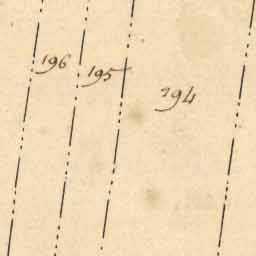 196 195 194